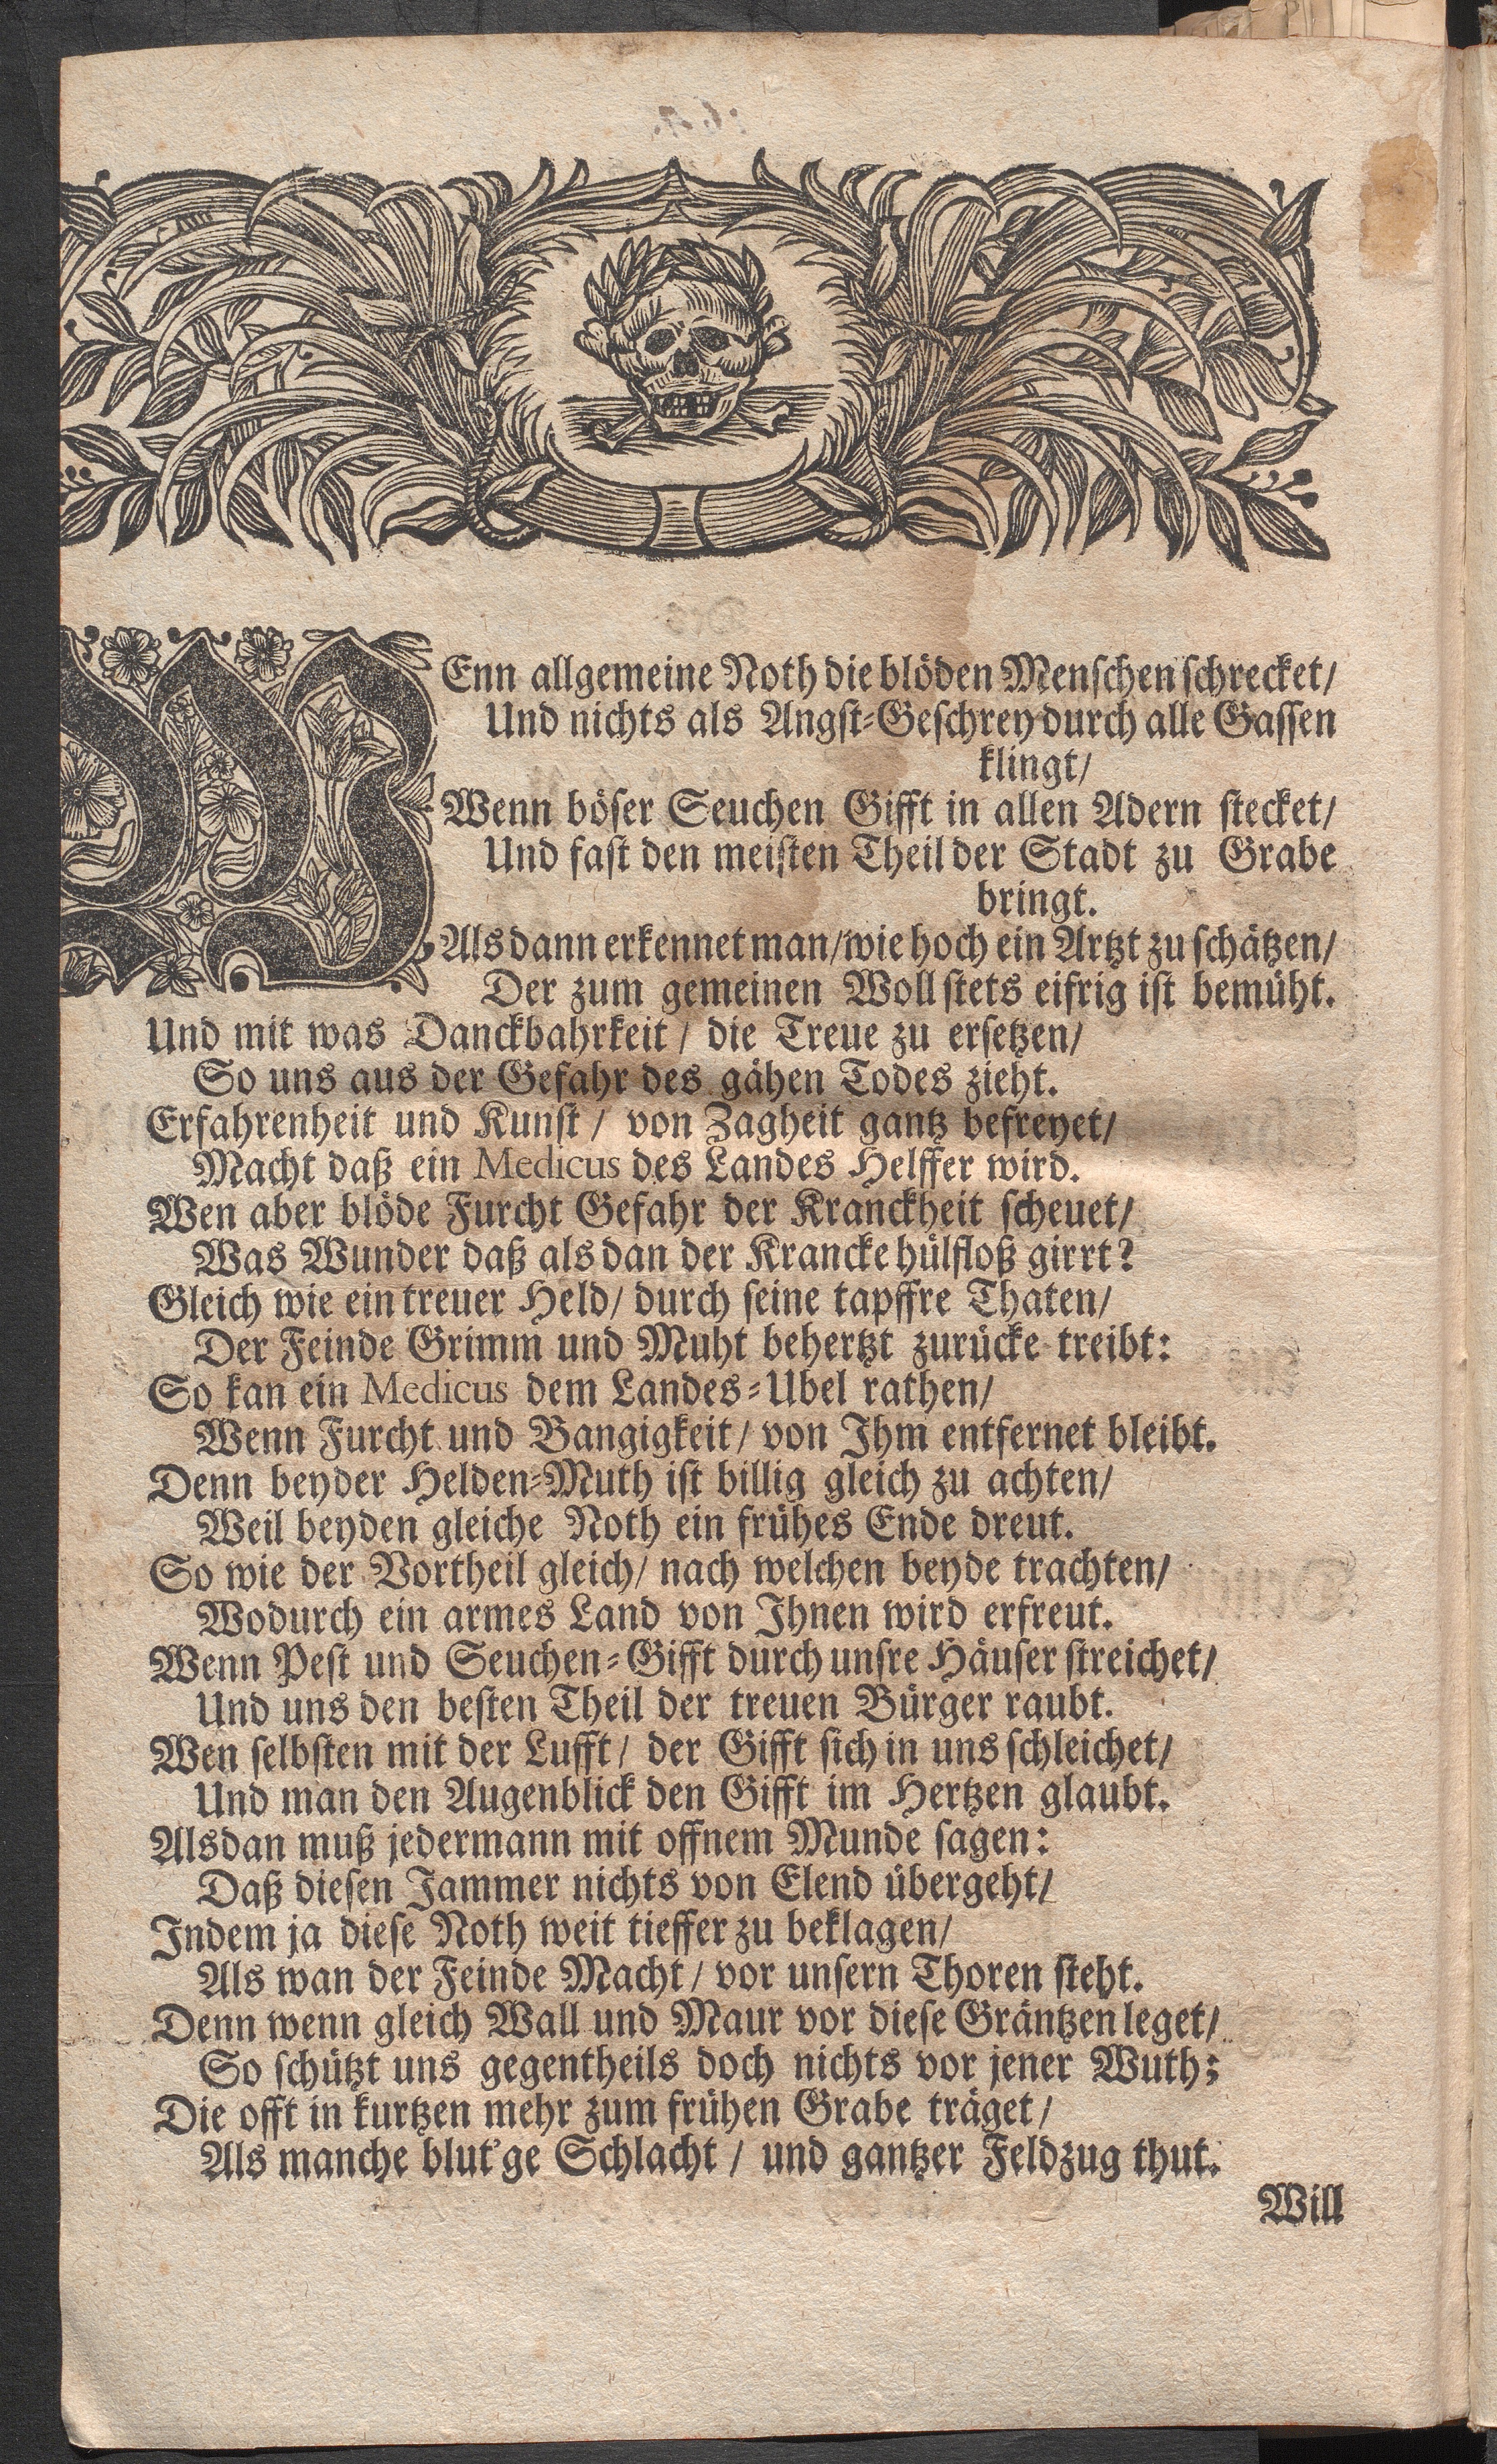 WEnn allgemeine Noth die blöden Menschen schrecket/
Und nichts als Angst-Geschrey durch alle Gassen
klingt/
Wenn böser Seuchen Gifft in allen Adern stecket/
Und fast den meisten Theil der Stadt zu Grabe
bringt.
Alsdann erkennet man/wie hoch ein Artzt zu schätzen/
Der zum gemeinen Woll stets eifrig ist bemüht.
Und mit was Danckbahrkeit / die Treue zu ersetzen/
So uns aus der Gefahr des gähen Todes zieht.
Erfahrenheit und Kunst / von Zagheit gantz befreyet/
Macht daß ein Medicus des Landes Helffer wird.
Wen aber blöde Furcht Gefahr der Kranckheit scheuet/
Was Wunder daß als dan der Krancke hülfloß girrt?
Gleich wie ein treuer Held/ durch seine tapffre Thaten/
Der Feinde Grimm und Muht behertzt zurücke treibt:
So kan ein Medicus dem Landes-Ubel rathen/
Wenn Furcht und Bangigkeit/ von Ihm entfernet bleibt.
Denn beyder Helden-Muth ist billig gleich zu achten/
Weil beyden gleiche Noth ein frühes Ende dreut.
So wie der Vortheil gleich/ nach welchen beyde trachten/
Wodurch ein armes Land von Ihnen wird erfreut.
Wenn Pest und Seuchen-Gifft durch unsre Häuser streichet/
Und uns den besten Theil der treuen Bürger raubt.
Wen selbsten mit der Lufft/ der Gifft sich in uns schleichet/
Und man den Augenblick den Gifft im Hertzen glaubt.
Alsdan muß jedermann mit offnem Munde sagen:
Daß diesen Jammer nichts von Elend übergeht/
Indem ja diese Noth weit tieffer zu beklagen/
Als wan der Feinde Macht/ vor unsern Thoren steht.
Denn wenn gleich Wall und Maur vor diese Gräntzen leget/
So schützt uns gegentheils doch nichts vor jener Wuth;
Die offt in kurtzen mehr zum frühen Grabe träget/
Als manche blut'ge Schlacht / und gantzer Feldzug thut.
Will